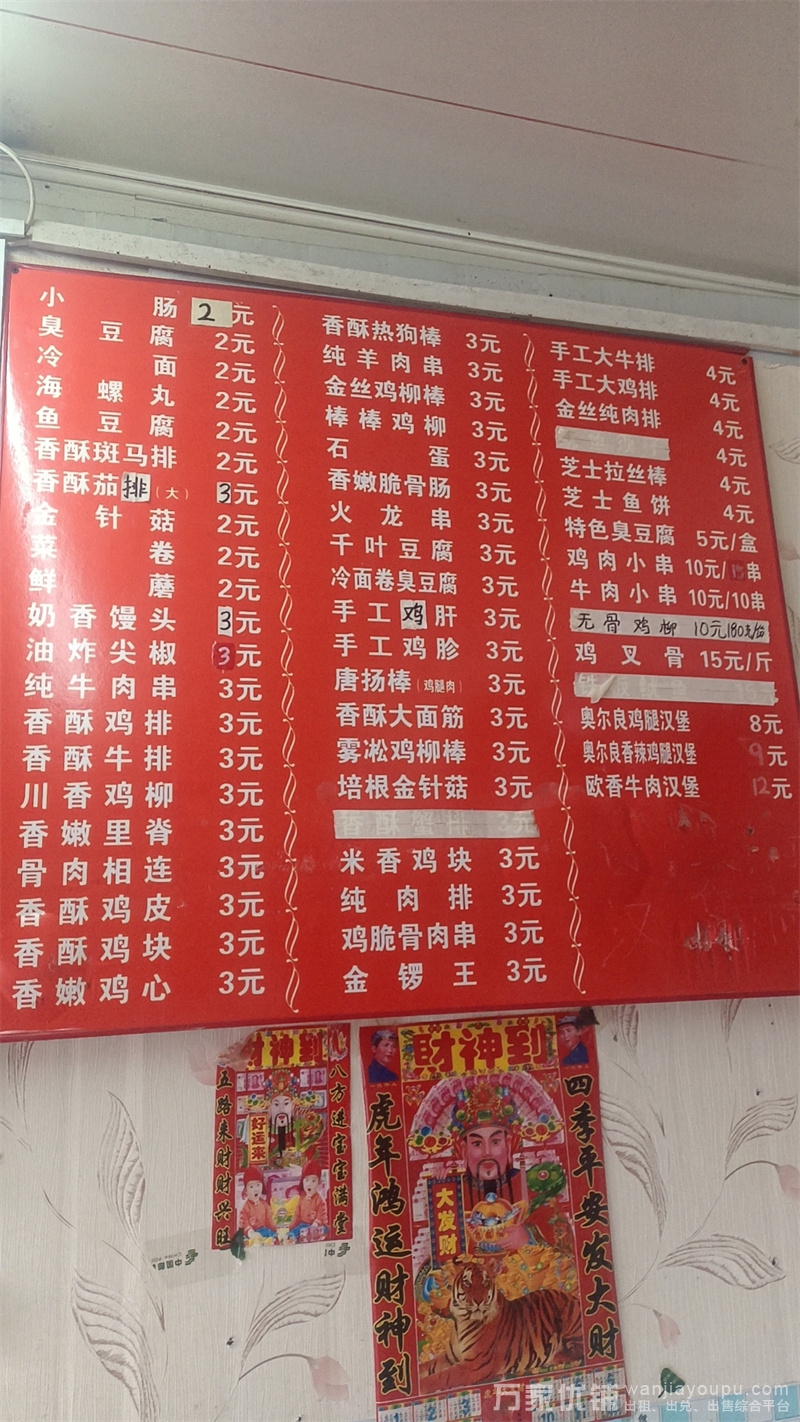 小肠 2元
臭豆腐 2元
冷面 2元
海螺丸 2元
鱼豆腐 2元
香酥斑马排 2元
香酥茄排(大) 3元
金针菇 2元
菜卷 2元
鲜蘑 2元
奶香馒头 3元
油炸尖椒 3元
纯牛肉串 3元
香酥鸡排 3元
香酥牛排 3元
川香鸡柳 3元
香嫩里脊 3元
骨肉相连 3元
香酥鸡皮 3元
香酥鸡块 3元
香嫩鸡心 3元
香酥热狗棒 3元
纯羊肉串 3元
金丝鸡柳棒 3元
棒棒鸡柳 3元
石蛋 3元
香嫩脆骨肠 3元
火龙串 3元
千叶豆腐 3元
冷面卷臭豆腐 3元
手工鸡肝 3元
手工鸡胗 3元
唐扬棒(鸡腿肉) 3元
香酥大面筋 3元
雾凇鸡柳棒 3元
培根金针菇 3元
香酥蟹排 3元
米香鸡块 3元
纯肉排 3元
鸡脆骨肉串 3元
金锣王 3元
手工大牛排 4元
手工大鸡排 4元
金丝纯肉排 4元
4元
芝士拉丝棒 4元
芝士鱼饼 4元
特色臭豆腐 5元/盒
鸡肉小串 10元/串
牛肉小串 10元/10串
无骨鸡柳 10元180克/份
鸡叉骨 15元/斤
奥尔良鸡腿汉堡 8元
奥尔良香辣鸡腿汉堡 9元
欧香牛肉汉堡 12元
财神到
五路来财财兴旺
八方进宝宝满堂
好运来
中国邮
財神到
虎年鸿运财神到
四季平安发大财
大发财
万家优铺 wanjiayoupu.com
出租、出兑、出售综合平台